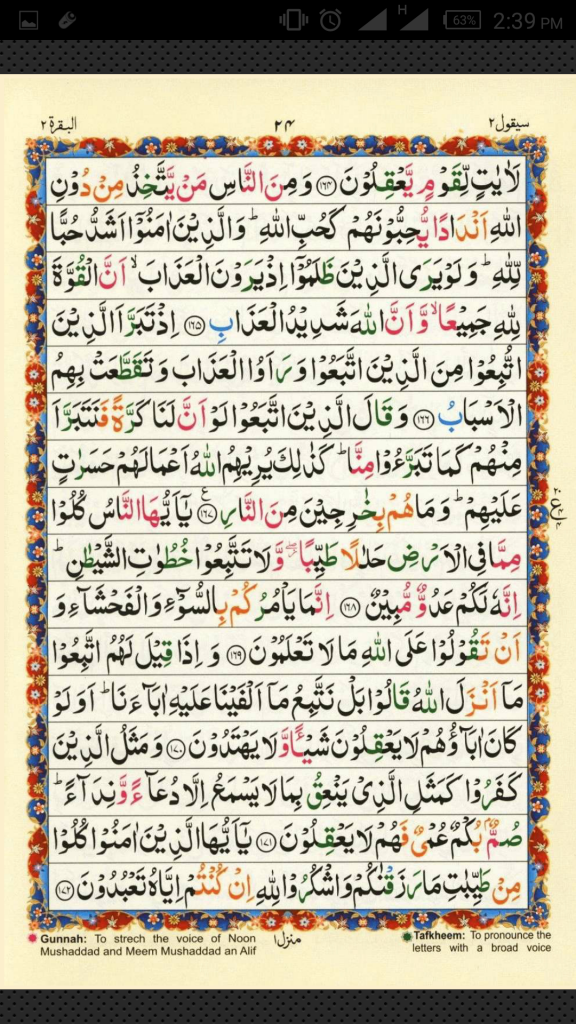 63% 2:39 PM
H
البقرة ٢
٢٤
سيقول ٢
لَاٰيٰتٍ لِّقَوْمٍ يَّعْقِلُوْنَ ﴿۱۶۴﴾ وَمِنَ النَّاسِ مَنْ يَّتَّخِذُ مِنْ دُوْنِ
اللّٰهِ اَنْدَادًا يُّحِبُّوْنَهُمْ كَحُبِّ اللّٰهِ ؕ وَالَّذِيْنَ اٰمَنُوْٓا اَشَدُّ حُبًّا
لِّلّٰهِ ؕ وَلَوْ يَرَى الَّذِيْنَ ظَلَمُوْٓا اِذْ يَرَوْنَ الْعَذَابَ ۙ اَنَّ الْقُوَّةَ
لِلّٰهِ جَمِيْعًا ۙ وَّاَنَّ اللّٰهَ شَدِيْدُ الْعَذَابِ ﴿۱۶۵﴾ اِذْ تَبَرَّاَ الَّذِيْنَ
اتُّبِعُوْا مِنَ الَّذِيْنَ اتَّبَعُوْا وَرَاَوُا الْعَذَابَ وَتَقَطَّعَتْ بِهِمُ
الْاَسْبَابُ ﴿۱۶۶﴾ وَقَالَ الَّذِيْنَ اتَّبَعُوْا لَوْ اَنَّ لَنَا كَرَّةً فَنَتَبَرَّاَ
مِنْهُمْ كَمَا تَبَرَّءُوْا مِنَّا ؕ كَذٰلِكَ يُرِيْهِمُ اللّٰهُ اَعْمَالَهُمْ حَسَرٰتٍ
عَلَيْهِمْ ؕ وَمَا هُمْ بِخٰرِجِيْنَ مِنَ النَّارِ ﴿۱۶۷﴾ ع يٰٓاَيُّهَا النَّاسُ كُلُوْا
مِمَّا فِى الْاَرْضِ حَلٰلًا طَيِّبًا ۖ وَّلَا تَتَّبِعُوْا خُطُوٰتِ الشَّيْطٰنِ ؕ
اِنَّهٗ لَكُمْ عَدُوٌّ مُّبِيْنٌ ﴿۱۶۸﴾ اِنَّمَا يَاْمُرُكُمْ بِالسُّوْٓءِ وَالْفَحْشَآءِ وَ
اَنْ تَقُوْلُوْا عَلَى اللّٰهِ مَا لَا تَعْلَمُوْنَ ﴿۱۶۹﴾ وَاِذَا قِيْلَ لَهُمُ اتَّبِعُوْا
مَآ اَنْزَلَ اللّٰهُ قَالُوْا بَلْ نَتَّبِعُ مَآ اَلْفَيْنَا عَلَيْهِ اٰبَآءَنَا ؕ اَوَلَوْ
كَانَ اٰبَآؤُهُمْ لَا يَعْقِلُوْنَ شَيْـًٔا وَّلَا يَهْتَدُوْنَ ﴿۱۷۰﴾ وَمَثَلُ الَّذِيْنَ
كَفَرُوْا كَمَثَلِ الَّذِىْ يَنْعِقُ بِمَا لَا يَسْمَعُ اِلَّا دُعَآءً وَّنِدَآءً ؕ
صُمٌّۢ بُكْمٌ عُمْىٌ فَهُمْ لَا يَعْقِلُوْنَ ﴿۱۷۱﴾ يٰٓاَيُّهَا الَّذِيْنَ اٰمَنُوْا كُلُوْا
مِنْ طَيِّبٰتِ مَا رَزَقْنٰكُمْ وَاشْكُرُوْا لِلّٰهِ اِنْ كُنْتُمْ اِيَّاهُ تَعْبُدُوْنَ ﴿۱۷۲﴾
Gunnah: To strech the voice of Noon
Mushaddad and Meem Mushaddad an Alif
منزل ١
Tafkheem: To pronounce the
letters with a broad voice